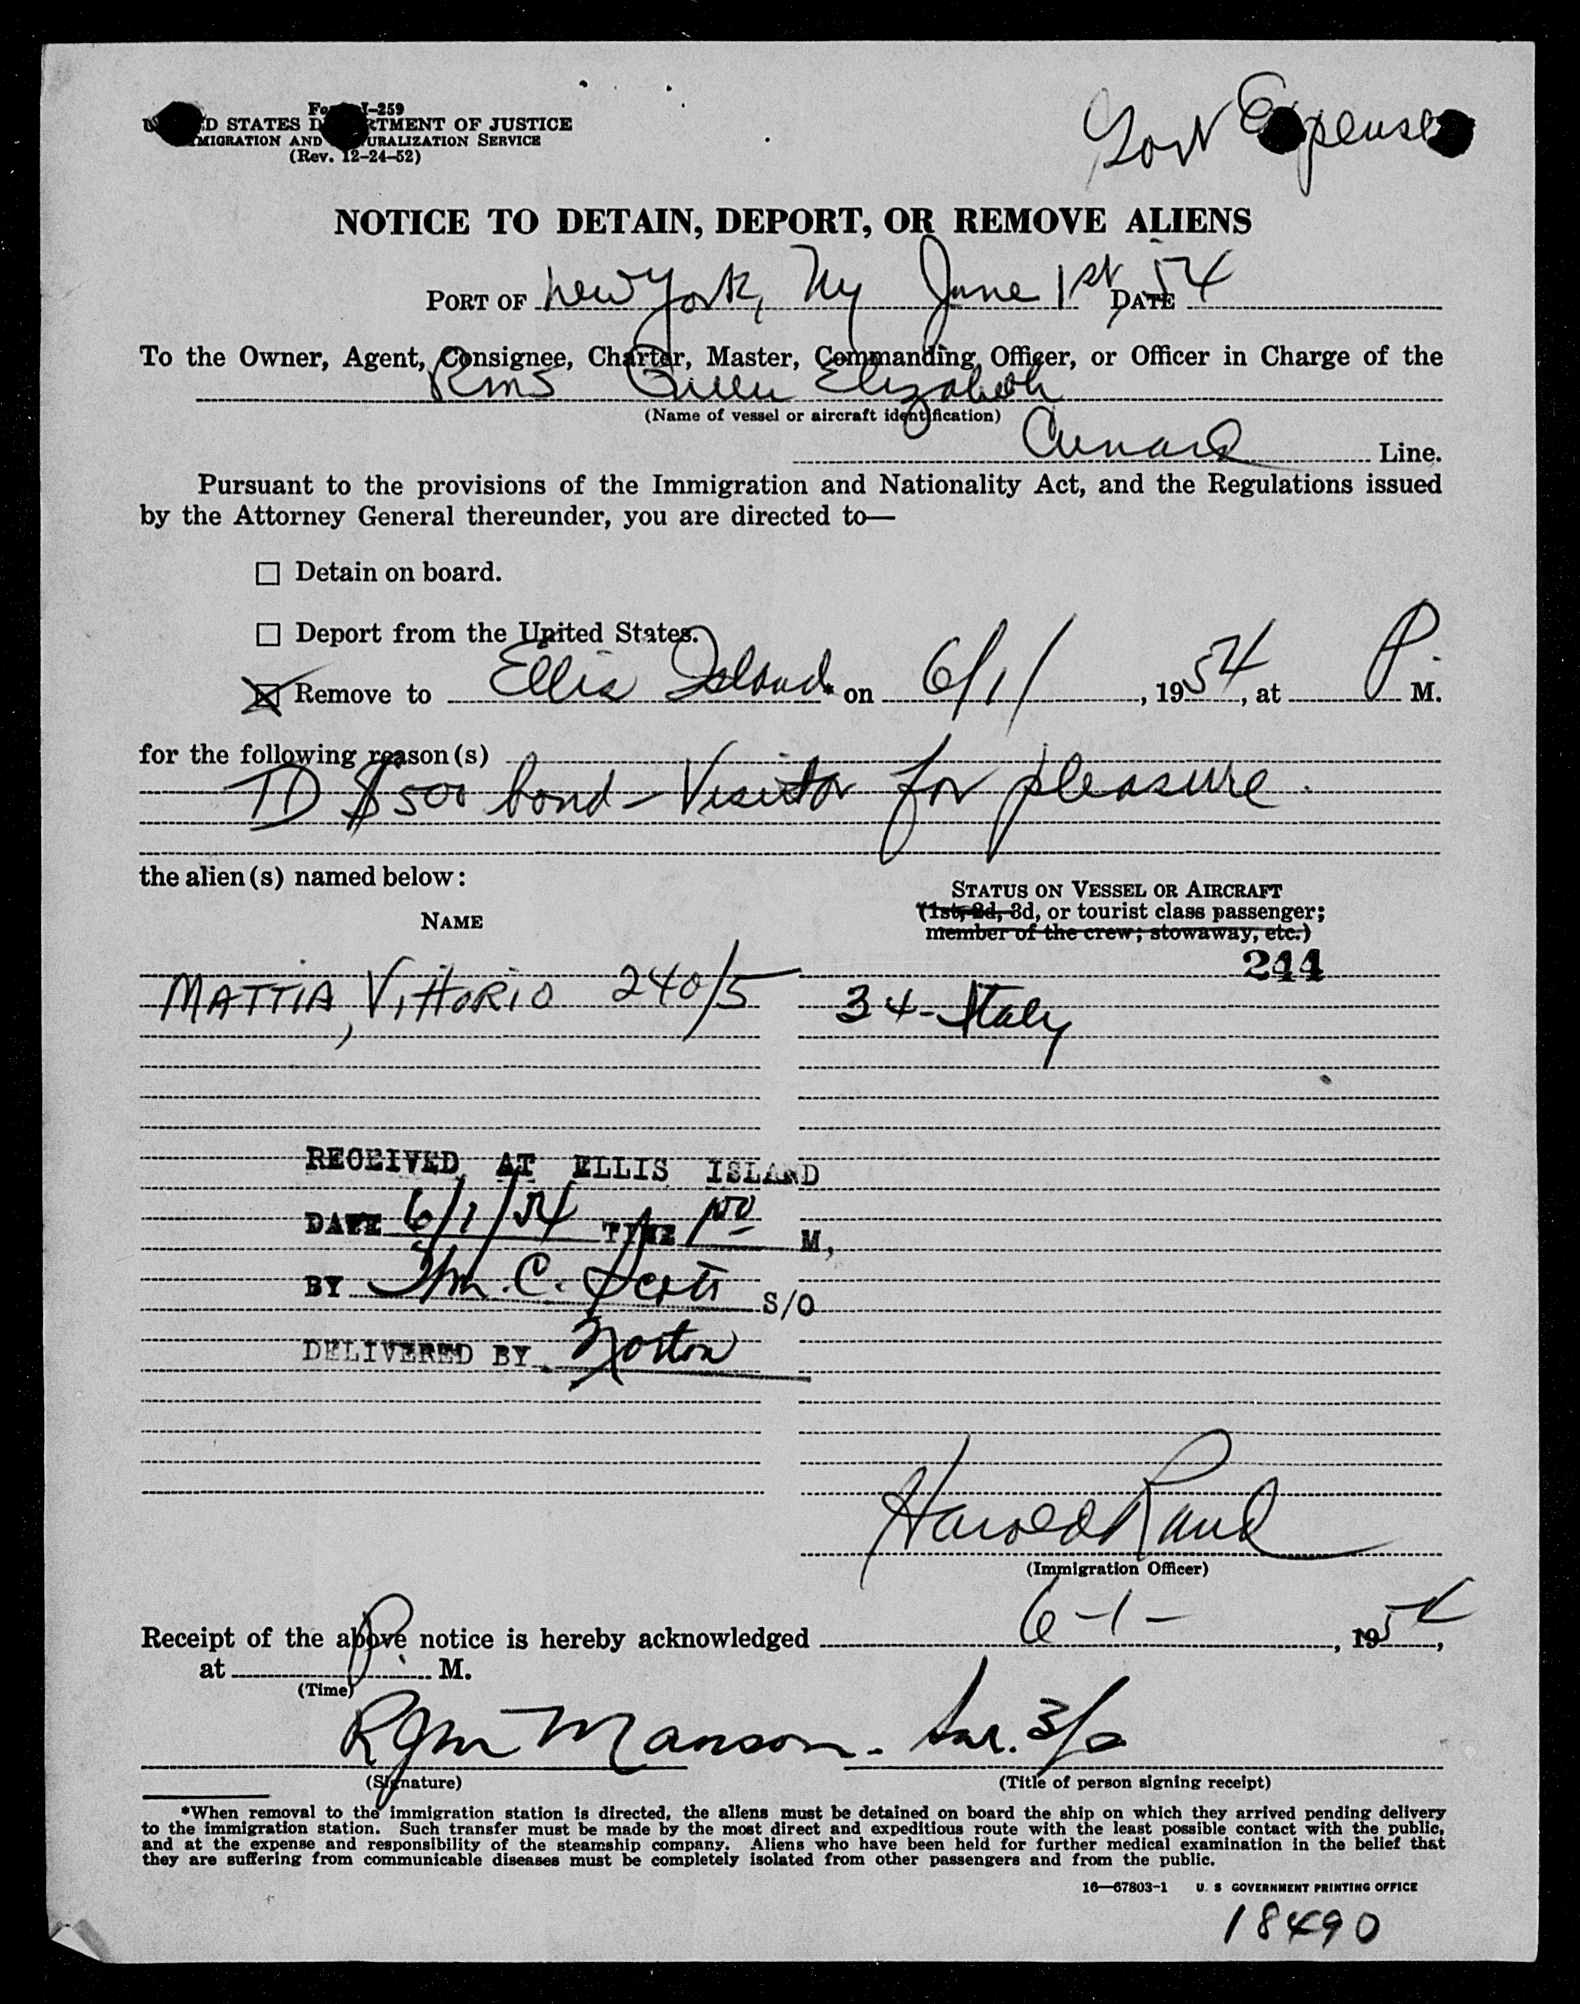 Form I-259
UNITED STATES DEPARTMENT OF JUSTICE
IMMIGRATION AND NATURALIZATION SERVICE
(Rev. 12-24-52)
Govt Expense
NOTICE TO DETAIN, DEPORT, OR REMOVE ALIENS
PORT OF New York, Ny June 1st, 54 DATE
To the Owner, Agent, Consignee, Charter, Master, Commanding Officer, or Officer in Charge of the
RMS Queen Elizabeth
(Name of vessel or aircraft identification)
Cunard Line.
Pursuant to the provisions of the Immigration and Nationality Act, and the Regulations issued
by the Attorney General thereunder, you are directed to—
☐ Detain on board.
☐ Deport from the United States.
☒ Remove to Ellis Island * on 6/1/, 1954, at P. M.
for the following reason(s)
TD $500 bond - Visitor for pleasure.
the alien(s) named below:
STATUS ON VESSEL OR AIRCRAFT
NAME
(1st, 2d, 3d, or tourist class passenger;
member of the crew; stowaway, etc.)
244
MATTIA, VITTORIO 240/5 34-Italy
RECEIVED AT ELLIS ISLAND
DATE 6/1/54 TIME 1 50 M,
BY C. Scott S/O
DELIVERED BY Norton
Harold Rand
(Immigration Officer)
Receipt of the above notice is hereby acknowledged 6-1-, 1954,
at P. M.
(Time)
Manson. 3/o
(Signature) (Title of person signing receipt)
*When removal to the immigration station is directed, the aliens must be detained on board the ship on which they arrived pending delivery
to the immigration station. Such transfer must be made by the most direct and expeditious route with the least possible contact with the public,
and at the expense and responsibility of the steamship company. Aliens who have been held for further medical examination in the belief that
they are suffering from communicable diseases must be completely isolated from other passengers and from the public.
16—67803-1 U. S GOVERNMENT PRINTING OFFICE
18490